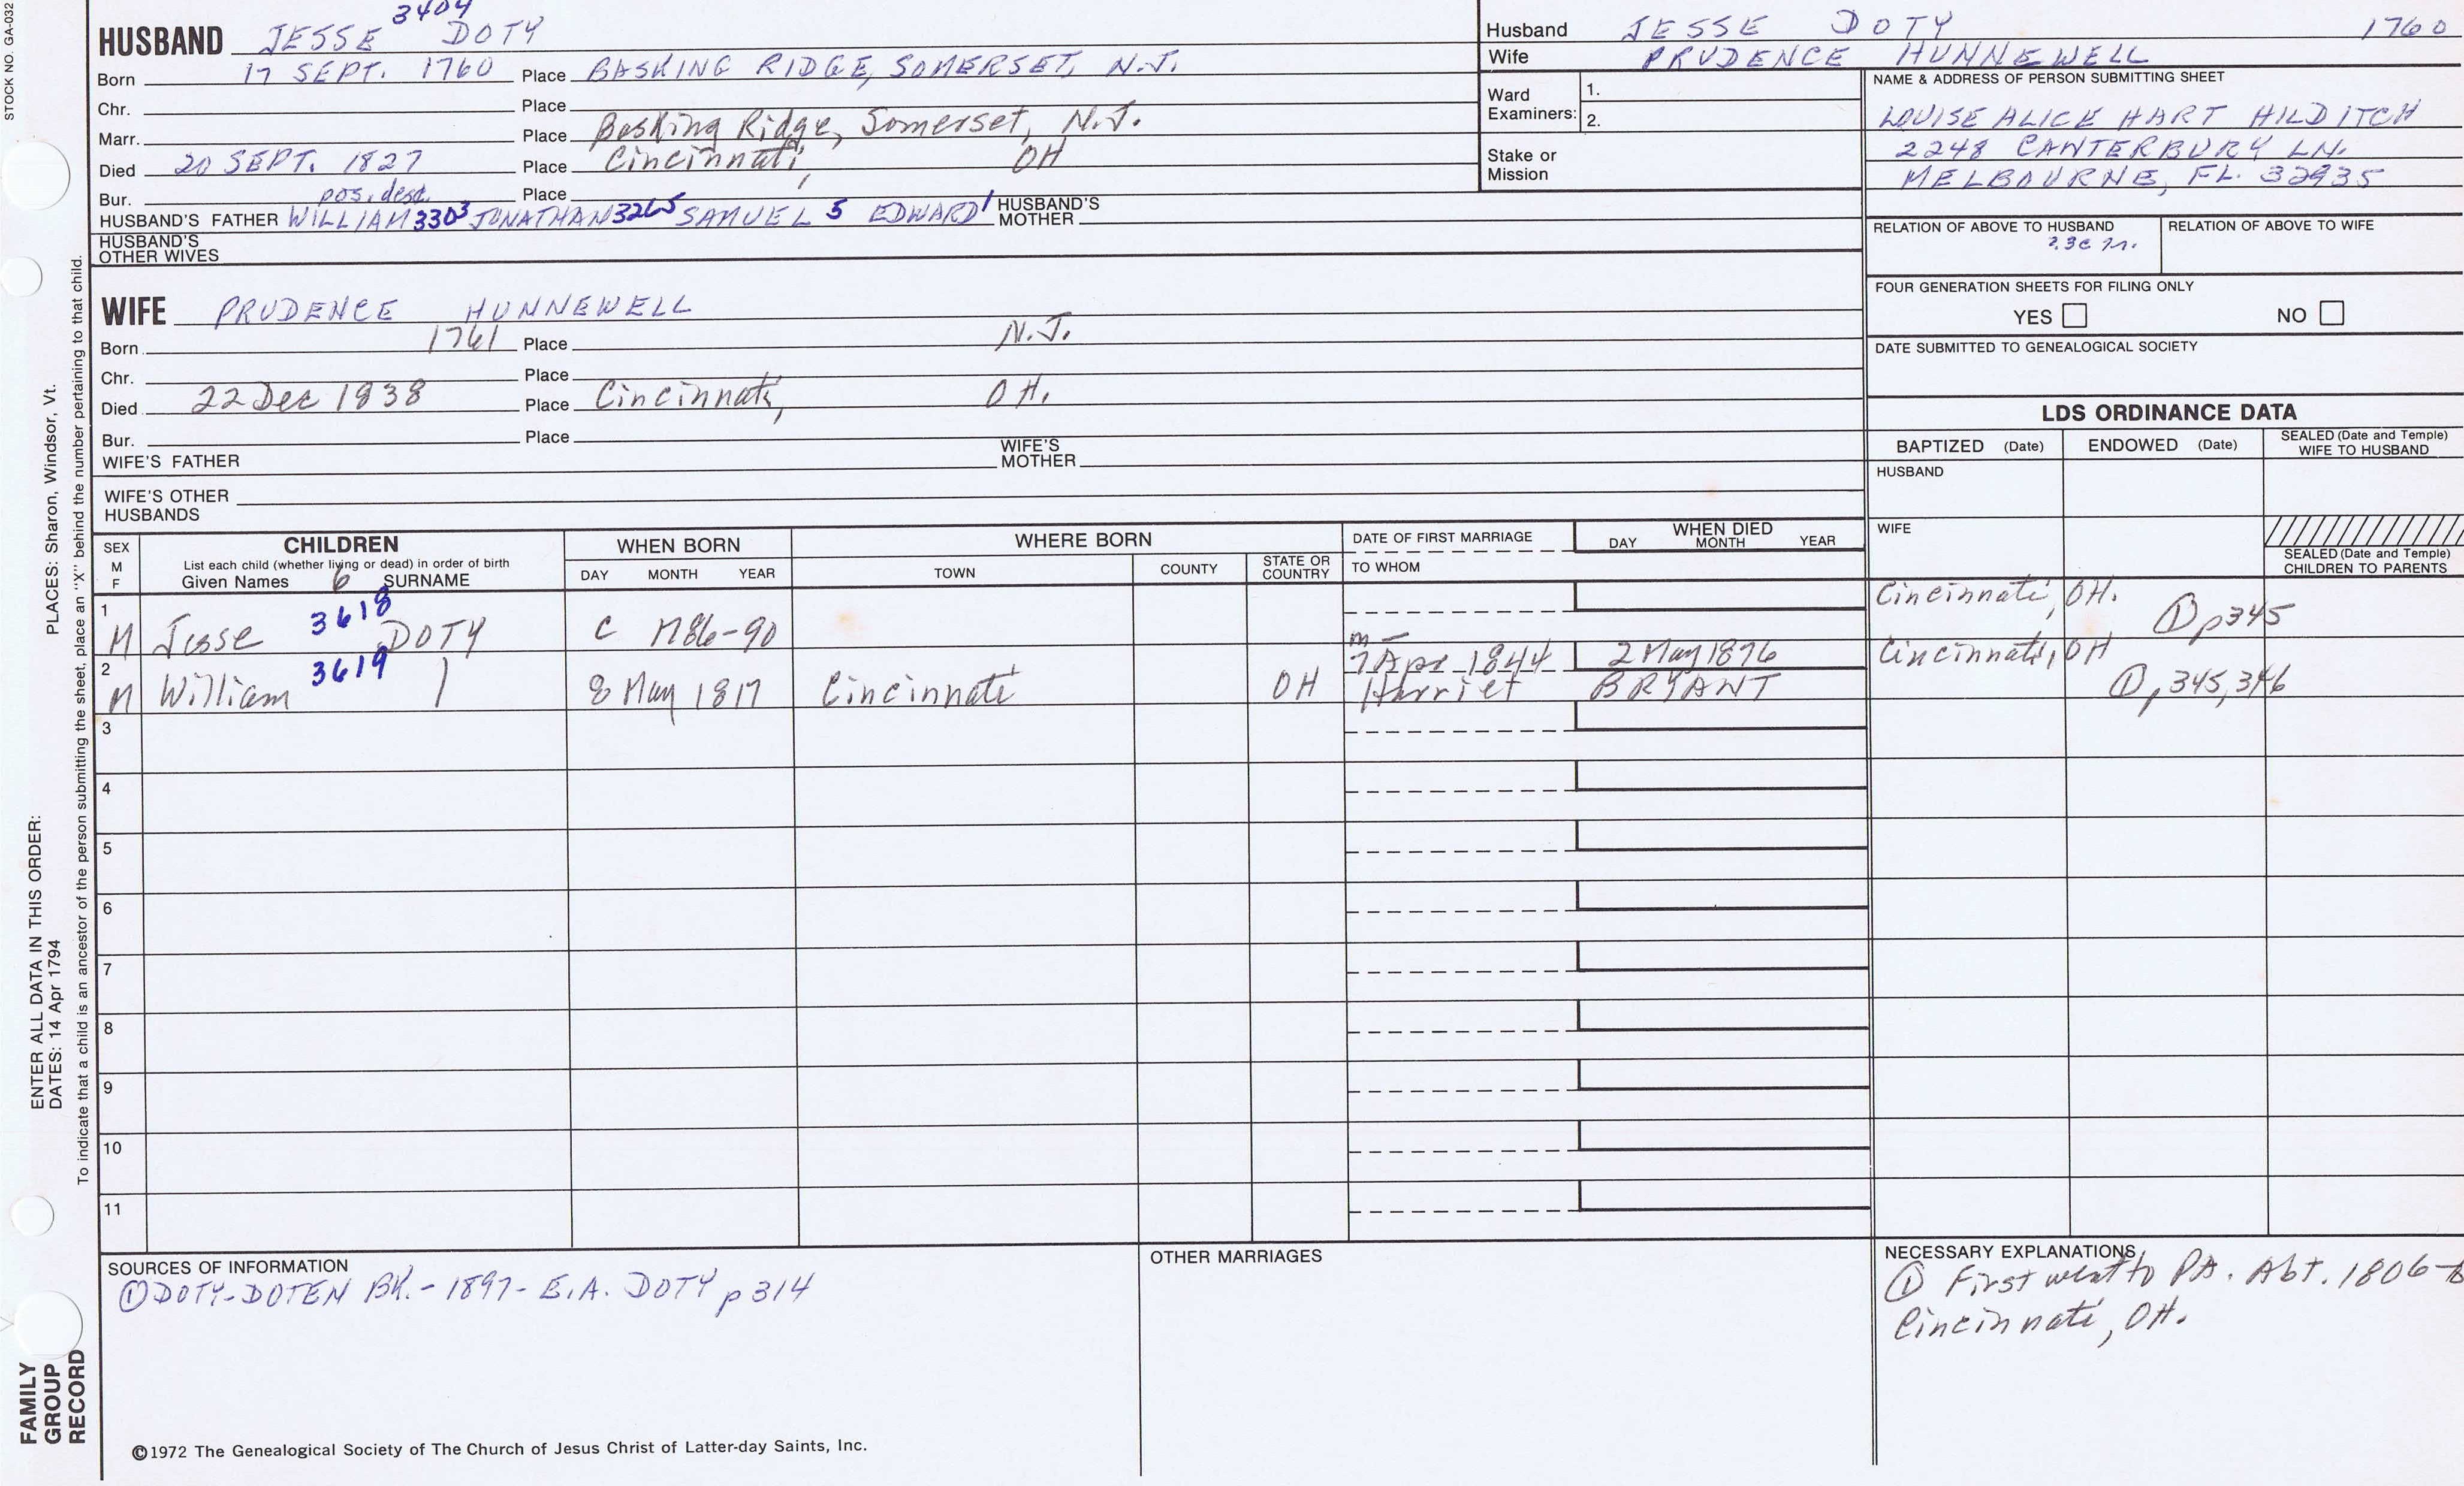 STOCK NO. GA-032
3404
HUSBAND JESSE DOTY
Born 17 SEPT. 1760 Place BASKING RIDGE, SOMERSET, N.J.
Chr. Place
Marr. Place Basking Ridge, Somerset, N.J.
Died 20 SEPT. 1827 Place Cincinnati, OH
Bur. pos. desc. Place
HUSBAND'S FATHER WILLIAM 3303 JONATHAN 3265 SAMUEL 5 EDWARD 1 HUSBAND'S MOTHER
HUSBAND'S OTHER WIVES
WIFE PRUDENCE HUNNEWELL
Born 1761 Place N.J.
Chr. Place
Died 22 Dec 1838 Place Cincinnati, OH.
Bur. Place
WIFE'S FATHER WIFE'S MOTHER
WIFE'S OTHER HUSBANDS
Husband JESSE DOTY 1760
Wife PRUDENCE HUNNEWELL
Ward Examiners: 1.
2.
Stake or Mission
NAME & ADDRESS OF PERSON SUBMITTING SHEET
LOUISE ALICE HART HILDITCH
2248 CANTERBURY LN.
MELBOURNE, FL. 32935
RELATION OF ABOVE TO HUSBAND RELATION OF ABOVE TO WIFE
FOUR GENERATION SHEETS FOR FILING ONLY
YES NO
DATE SUBMITTED TO GENEALOGICAL SOCIETY
LDS ORDINANCE DATA
BAPTIZED (Date) ENDOWED (Date) SEALED (Date and Temple) WIFE TO HUSBAND
HUSBAND
WIFE
SEALED (Date and Temple) CHILDREN TO PARENTS
SEX M F
CHILDREN
List each child (whether living or dead) in order of birth
Given Names 6 SURNAME
WHEN BORN
DAY MONTH YEAR
WHERE BORN
TOWN COUNTY STATE OR COUNTRY
DATE OF FIRST MARRIAGE
TO WHOM
WHEN DIED
DAY MONTH YEAR
1 M Jesse 3618 DOTY c 1786-90 m — Cincinnati, OH. ① p345
2 M William 3619 8 May 1817 Cincinnati OH 7 Apr 1844 Harriet BRYANT 2 May 1876 Cincinnati, OH ① p, 345, 346
3
4
5
6
7
8
9
10
11
SOURCES OF INFORMATION
① DOTY-DOTEN BK. - 1897 - E.A. DOTY p 314
OTHER MARRIAGES
NECESSARY EXPLANATIONS
① First went to PA. Abt. 1806-
Cincinnati, OH.
©1972 The Genealogical Society of The Church of Jesus Christ of Latter-day Saints, Inc.
FAMILY GROUP RECORD
ENTER ALL DATA IN THIS ORDER:
DATES: 14 Apr 1794 PLACES: Sharon, Windsor, Vt.
To indicate that a child is an ancestor of the person submitting the sheet, place an "X" behind the number pertaining to that child.